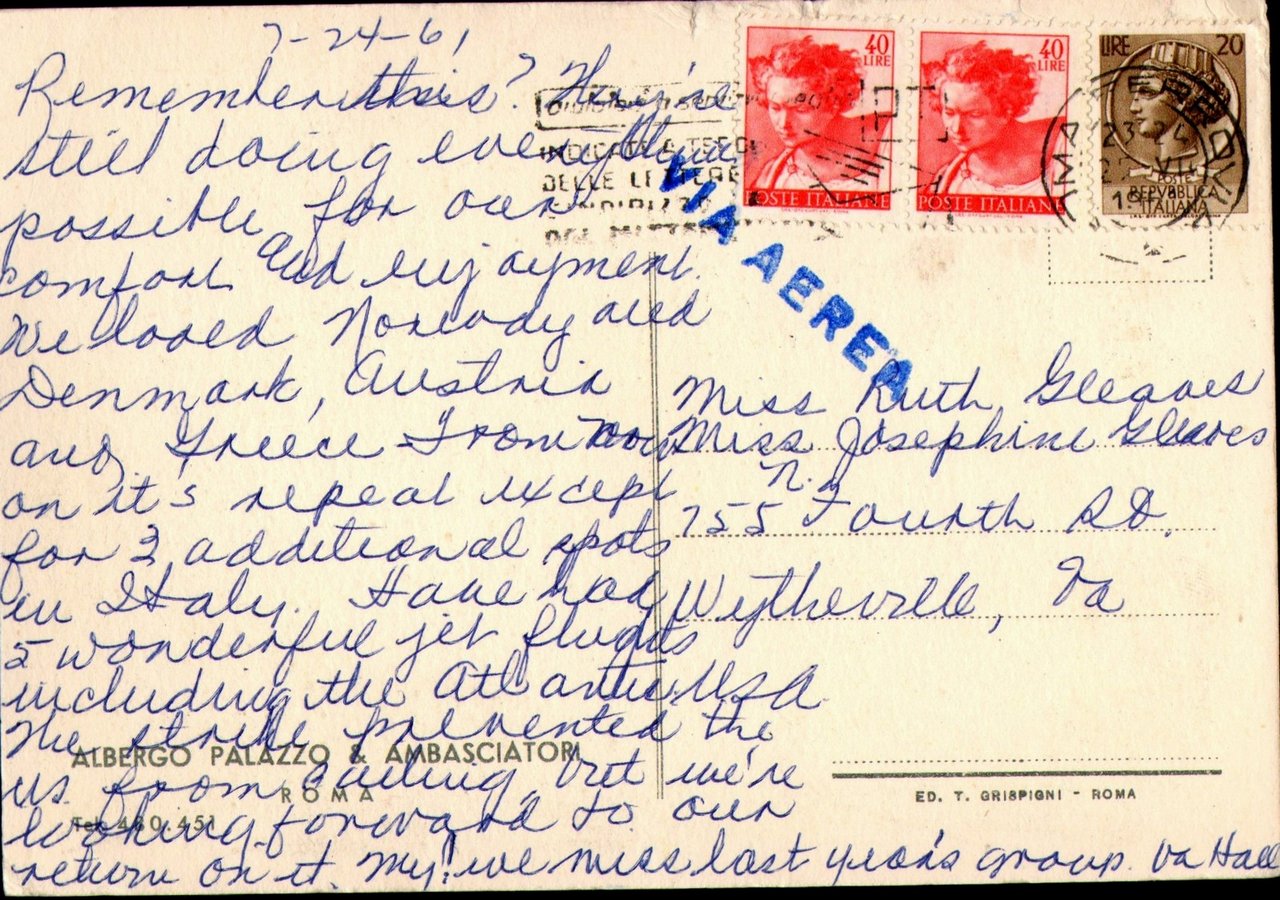 7-24-61
Remember this? They're
still doing everything
possible for our
comfort and enjoyment.
We loved Norway and
Denmark, Austria
and Greece From now
on it's repeat except
for 2 additional spots
in Italy. Have had
5 wonderful jet flights
including the Atlantic.
The strike prevented the
us from sailing, but we're
looking forward to our
return on it. My! we miss last year's group. Va Hall
ALBERGO PALAZZO & AMBASCIATORI
ROMA
Tel. 480.451
INDICATE A TERGO
DELLE LETTERE
L'INDIRIZZO
DEL MITTENTE
40
LIRE
POSTE ITALIANE
40
LIRE
POSTE ITALIANE
LIRE 20
POSTE
REPVBBLICA
ITALIANA
VIA AEREA
Miss Ruth Gleaves
Miss Josephine Gleaves
755 N. Fourth St.
Wytheville, Va
USA
ED. T. GRISPIGNI - ROMA